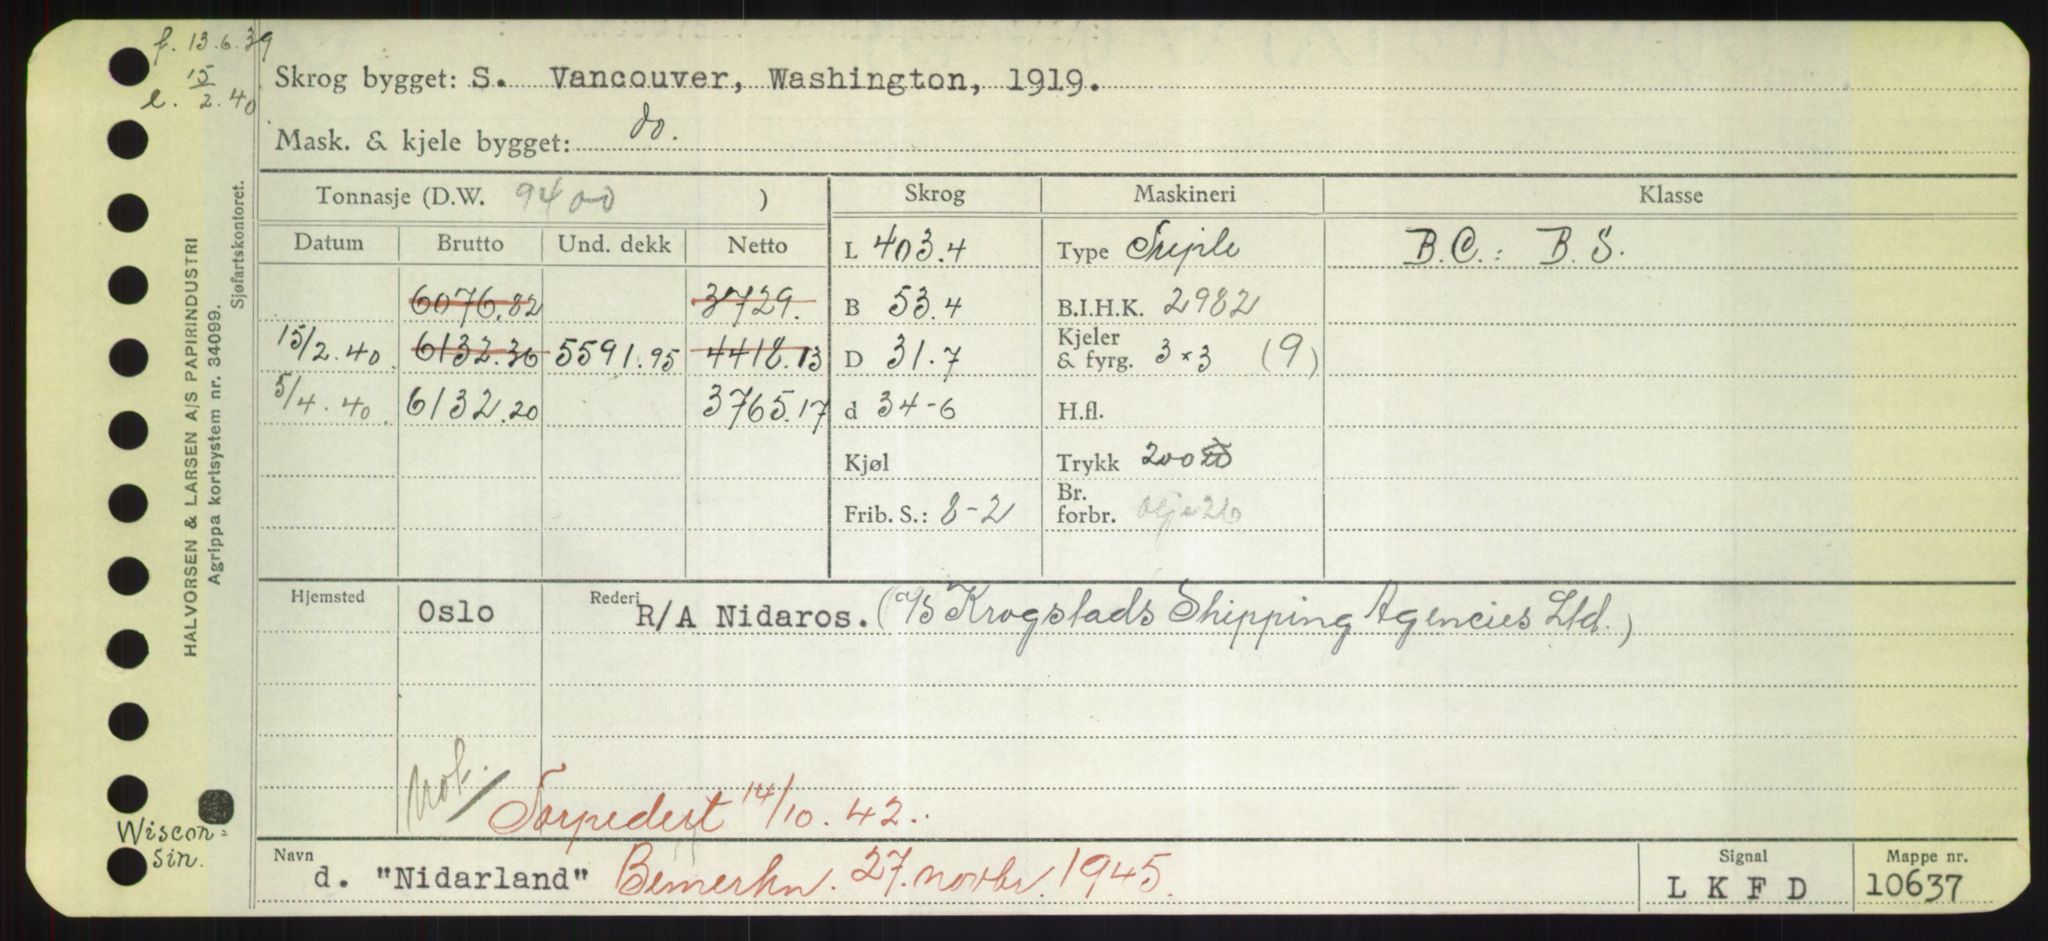 f. 13.6.39
e. 15/2.40
Skrog bygget: S. Vancouver, Washington, 1919.
Mask. & kjele bygget: do.
Tonnasje (D.W. 9400 )
Skrog
Maskineri
Klasse
Datum Brutto Und. dekk Netto
L 403.4
Type Triple
B.C.: B.S.
6076.82 3729.
B 53.4
B.I.H.K. 2982
15/2.40. 6132.36 5591.95 4418.13
D 31.7
Kjeler & fyrg. 3×3 (9)
5/4.40. 6132.20 3765.17
d 34-6
H.fl.
Kjøl
Trykk 200
Frib. S.: 8-2
Br. forbr. olje 26
Hjemsted Oslo
Rederi R/A Nidaros. (A/S Krogstads Shipping Agencies Ltd.)
Not. / Torpedert 14/10.42..
Navn d. "Nidarland" Bemerkn. 27. novbr. 1945.
Signal L K F D
Mappe nr. 10637
Wiscon=
sin.
HALVORSEN & LARSEN A/S PAPIRINDUSTRI
Agrippa kortsystem nr. 34099.
Sjøfartskontoret.